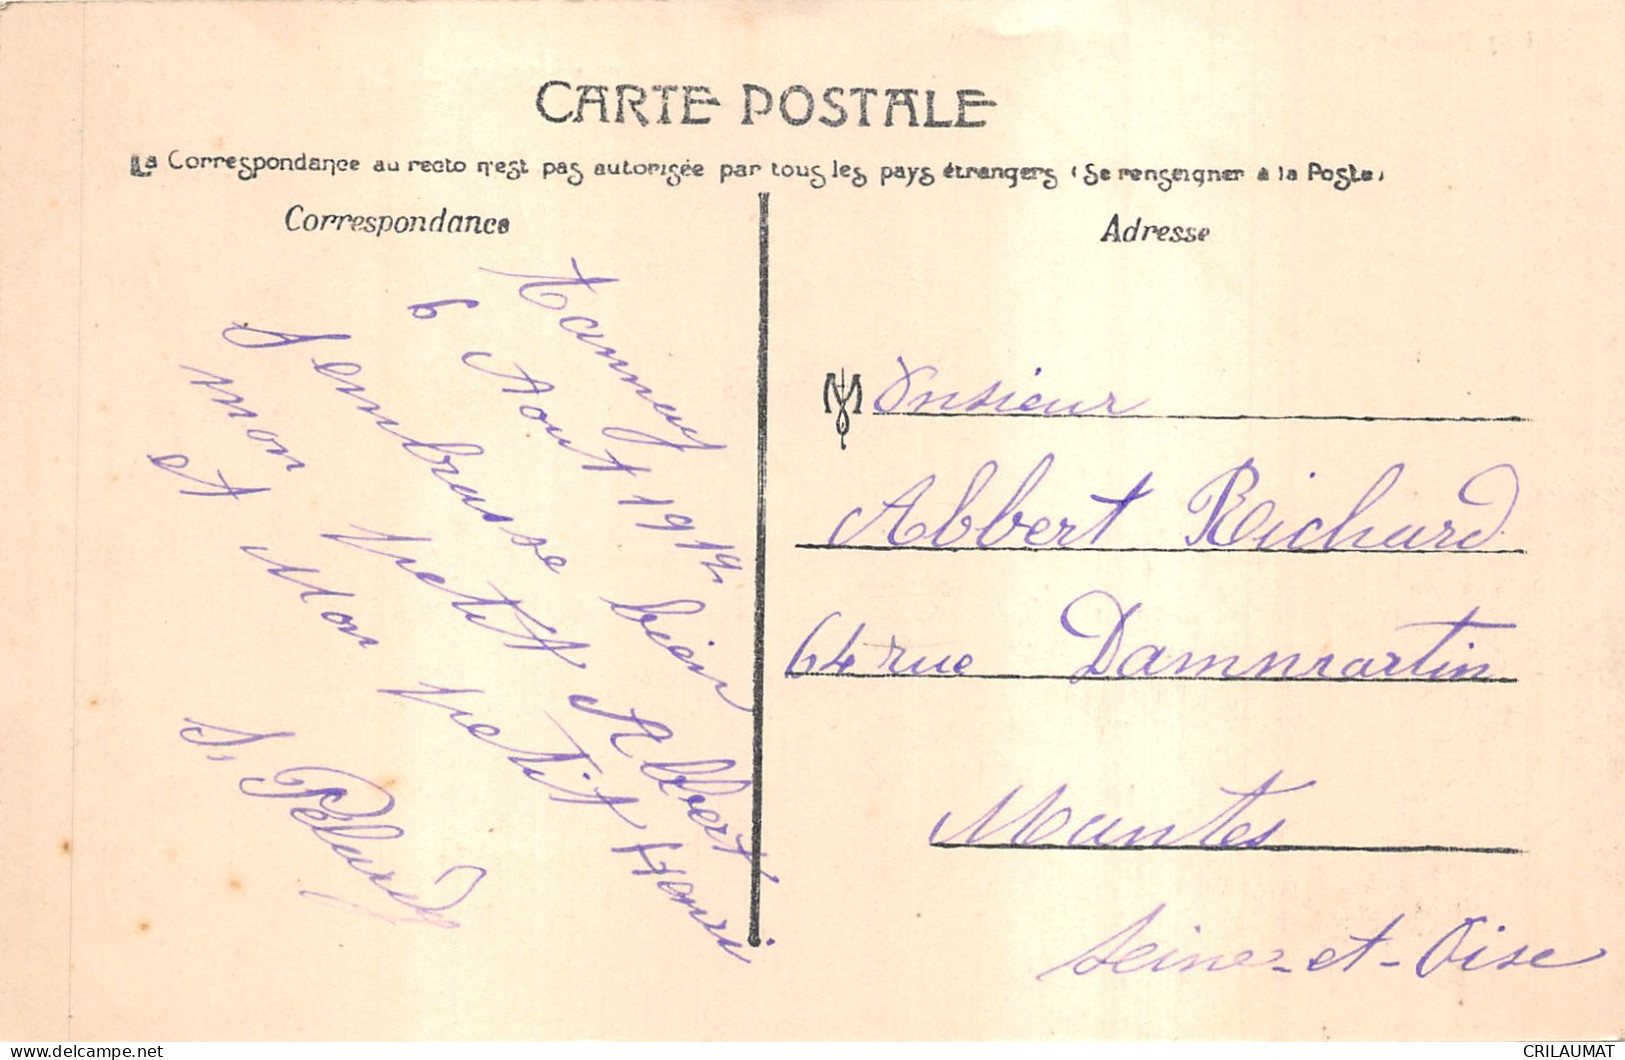 CARTE POSTALE
La Correspondance au recto n'est pas autorisée par tous les pays étrangers (Se renseigner à la Poste)
Correspondance
Tannay
6 Aout 1912
J'embrasse bien
mon petit Albert
et Mon petit Henri
Adresse
Monsieur
Albert Richard
64 rue Dammartin
Mantes
Seine-et-Oise
CRILAUMAT